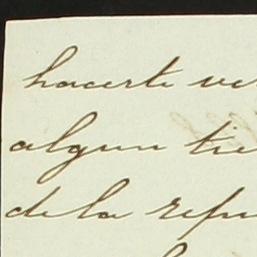 hacerte ve
algun tie
de la repu